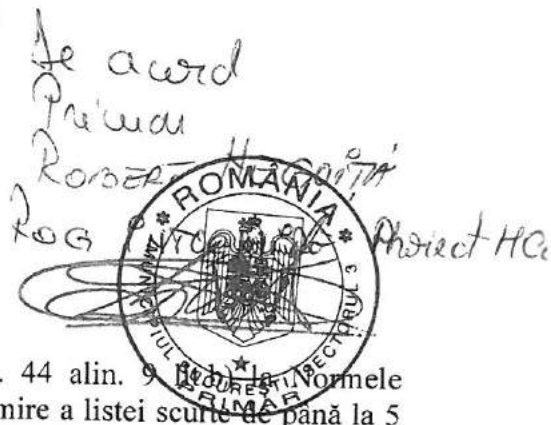 De acord
Primar
ROBERT
ROG Proiect HC
* ROMÂNIA *
MUNICIPIUL BUCUREȘTI, SECTORUL 3
PRIMAR
44 alin. 9 lit.b) la Normele
mire a listei scurte de până la 5